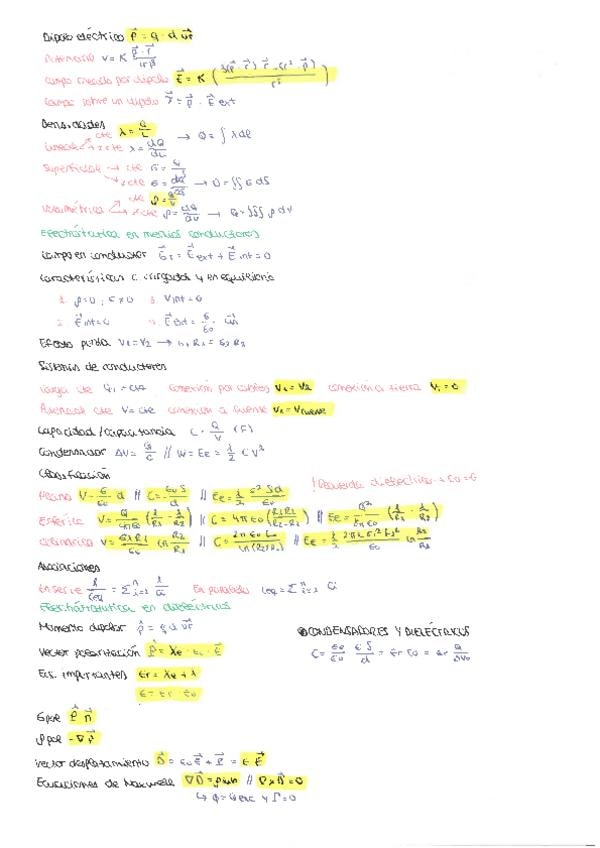 Dipolo eléctrico p⃗ = q · d u⃗r
Potencial V = K p⃗ · r⃗ / r³
campo creado por dipolo E⃗ = K ( 3(p⃗ · r⃗) r⃗ - (r² · p⃗) / r⁵ )
campo sobre un dipolo = p⃗ · E⃗ ext
Densidades
lineal → cte λ = Q/L → Q = ∫ λ dl
≠ cte λ = dQ/dL
Superficial → cte σ = Q/S
≠ cte σ = dQ/dS → Q = ∬ σ dS
Volumétrica → cte ρ = Q/V
≠ cte ρ = dQ/dV → Q = ∭ ρ dV
Electrostática en medios conductores
Campo en conductor E⃗T = E⃗ext + E⃗int = 0
Características c. cargados y en equilibrio
1. ρ = 0 ; σ ≠ 0 3. Vint = 0
2. E⃗int = 0 4. E⃗ext = σ/ε0 · u⃗n
Efecto punta V1 = V2 → σ1 R1 = σ2 R2
Sistemas de conductores
Carga cte Q1 = cte conexión por cables V1 = V2 conexión a tierra V1 = 0
Potencial cte V = cte conexión a fuente V1 = Vfuente
Capacidad/Capacitancia C = Q/V (F)
Condensador ΔV = Q/C // W = Ee = 1/2 C V²
Clasificación
Plano V = σ/ε0 · d // C = ε0 S/d // Ee = 1/2 σ² S d/ε0 ! Recuerda dieléctrico → ε0 = ε
Esférico V = Q/4πε0 (1/R1 - 1/R2) // C = 4πε0 (R1R2/R2-R1) // Ee = Q²/8πε0 (1/R1 - 1/R2)
Cilíndrico V = σ1R1/ε0 ln R2/R1 // C = 2πε0L/ln(R2/R1) // Ee = 1/2 ln R2/R1
Asociaciones
En serie 1/Ceq = Σⁿi=1 1/Ci En paralelo Ceq = Σⁿi=1 Ci
Electrostática en dieléctricos
Momento dipolar p⃗ = q d u⃗r
CONDENSADORES Y DIELÉCTRICOS
Vector polarización P⃗ = Xe · ε0 · E⃗
C = ε/ε0 · ε0 S/d = εr C0 = εr Q/ΔV0
Ecs. importantes εr = Xe + 1
ε = εr · ε0
σpol P⃗ n⃗
ρpol -∇P⃗
Vector desplazamiento D⃗ = ε0 E⃗ + P⃗ = ε E⃗
Ecuaciones de Maxwell ∇D⃗ = ρlib // ∇×D⃗ = 0
↳ Φ = Qenc y Γ = 0